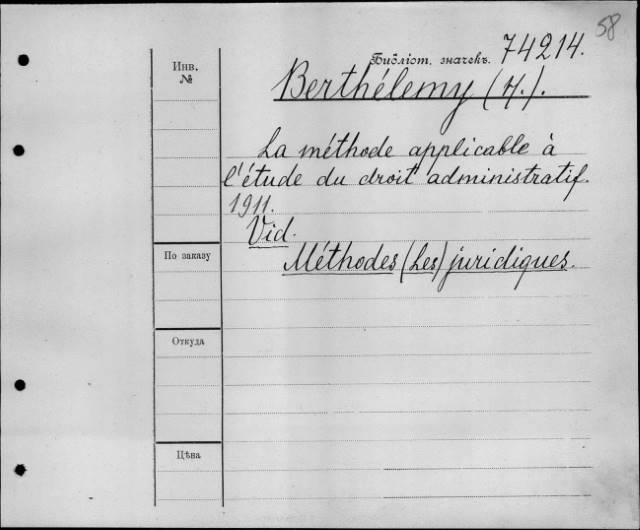 58
Библіот. значекъ. 74214.
Инв.
№
Berthélemy (H.).
La méthode applicable à
l'étude du droit administratif.
1911.
Vid.
Méthodes (Les) juridiques.
По заказу
Откуда
Цѣна